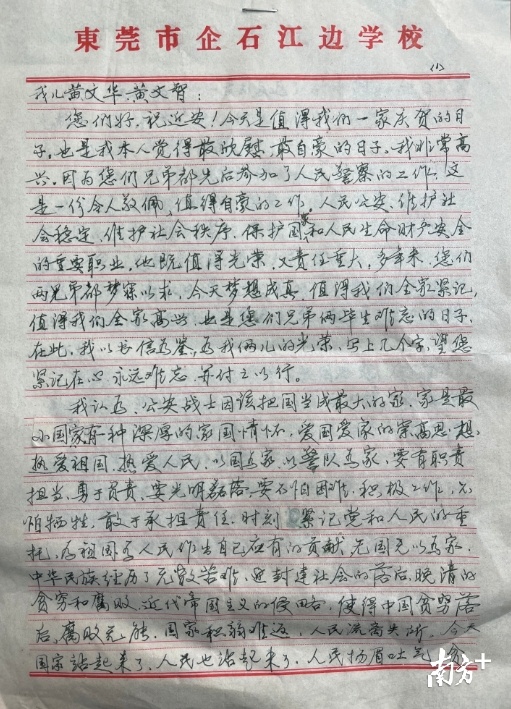 東莞市企石江边学校
(1)
我儿黄文华、黄文智：
您们好，祝近安！今天是值得我们一家庆贺的日
子，也是我本人觉得最欣慰、最自豪的日子，我非常高
兴。因为您们兄弟都先后参加了人民警察的工作，这
是一份令人敬佩、值得自豪的工作，人民公安，维护社
会稳定，维护社会秩序，保护国家和人民生命财产安全
的重要职业，他既值得光荣，又责任重大，多年来，您们
两兄弟都梦寐以求，今天梦想成真，值得我们全家紧记，
值得我们全家高兴，也是您们兄弟俩毕生难忘的日子，
在此，我以书信为鉴，为我俩儿的光荣，写上几个字，望您
紧记在心，永远难忘，并付之以行。
我认为，公安战士因该把国当成最大的家，家是最
小国家有一种深厚的家国情怀，爱国爱家的崇高思想，
热爱祖国，热爱人民，以国为家，以警队为家，要有职责
担当，勇于负责，要光明磊落，要不怕困难，积极工作，不
怕牺牲，敢于承担责任，时刻紧记党和人民的重
托，为祖国为人民作出自己应有的贡献，无国无以为家，
中华民族经历了无数苦难，近封建社会的落后，晚清的
贫穷和腐败，近代帝国主义的侵略，使得中国贫穷落
后，腐败无能，国家积弱难返，人民流离失所，今天
国家站起来了，人民也站起来了，人民扬眉吐气
南方+